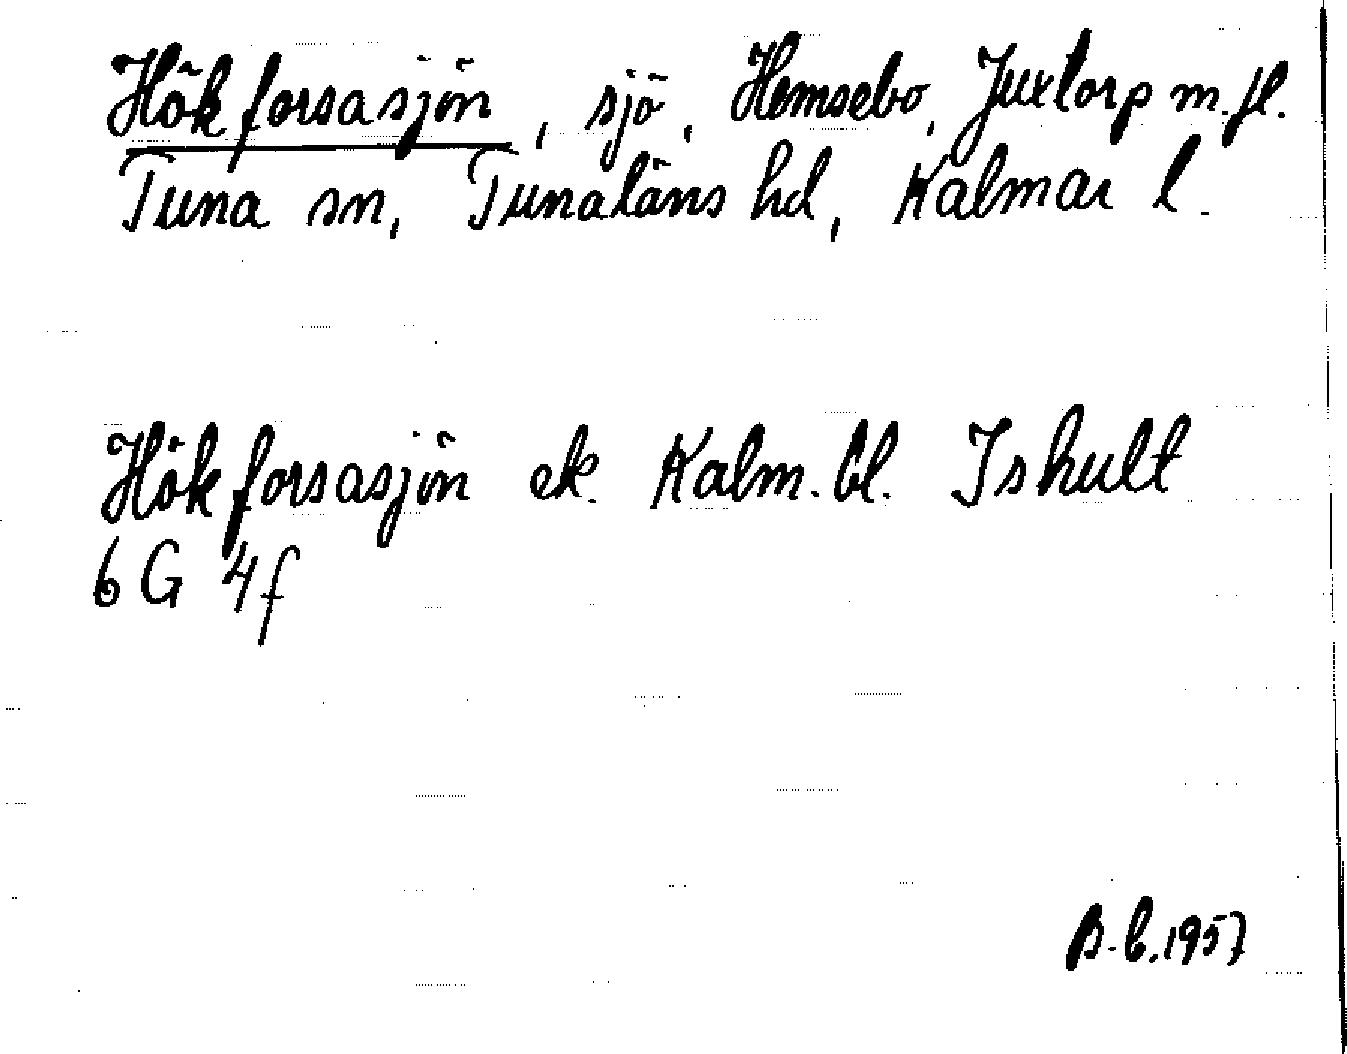 Hökforsasjön, sjö, Hemsebo, Juxtorp m.fl.
Tuna sn, Tunaläns hd, Kalmar l.
Hökforsasjön ek. Kalm. bl. Ishult
6 G 4f
B-b. 1957